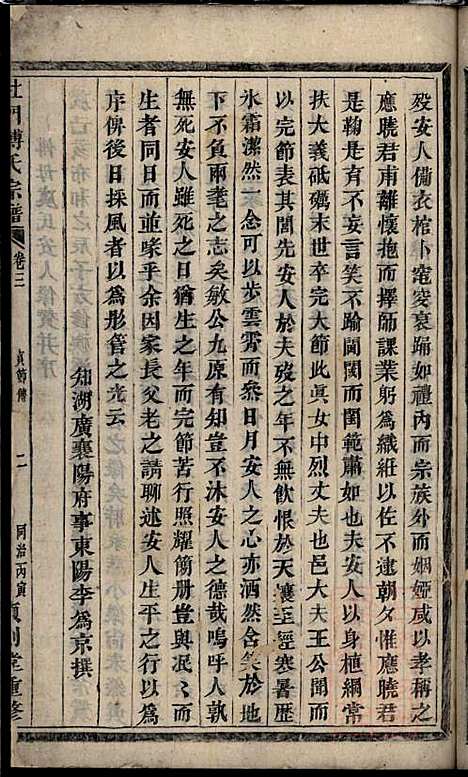 歿安人備衣棺卜窀穸哀踊如禮內而宗族外而姻婭咸以孝稱之
應曉君甫離懷抱而擇師課業躬爲織紝以佐不逮朝夕惟應曉君
是鞠是育不妄言笑不踰閫閾而閨範肅如也安人以一身植綱常
扶大義砥礪末世卒完大節此眞女中烈丈夫也大夫王公聞而
以完節表其閭先安人於夫歿之年無飲恨於天壤至經寒暑歷
氷霜潔然一念可以步雲霄而叅日月安人之心亦洒然含笑於地
下不負兩耄之志矣敏公九原有知豈不沐安人之德哉嗚呼人孰
無死安人雖死之日猶生之年而完節苦行照耀簡册豈與泯泯
生者同日而並喙乎余因家長父老之請聊述安人生平之行以爲
序俾後日採風者以爲彤管之光云
知湖廣襄陽府事東陽李爲京撰
杜門傅氏宗譜 卷三 貞節傳 二 同治丙寅 順則堂重修